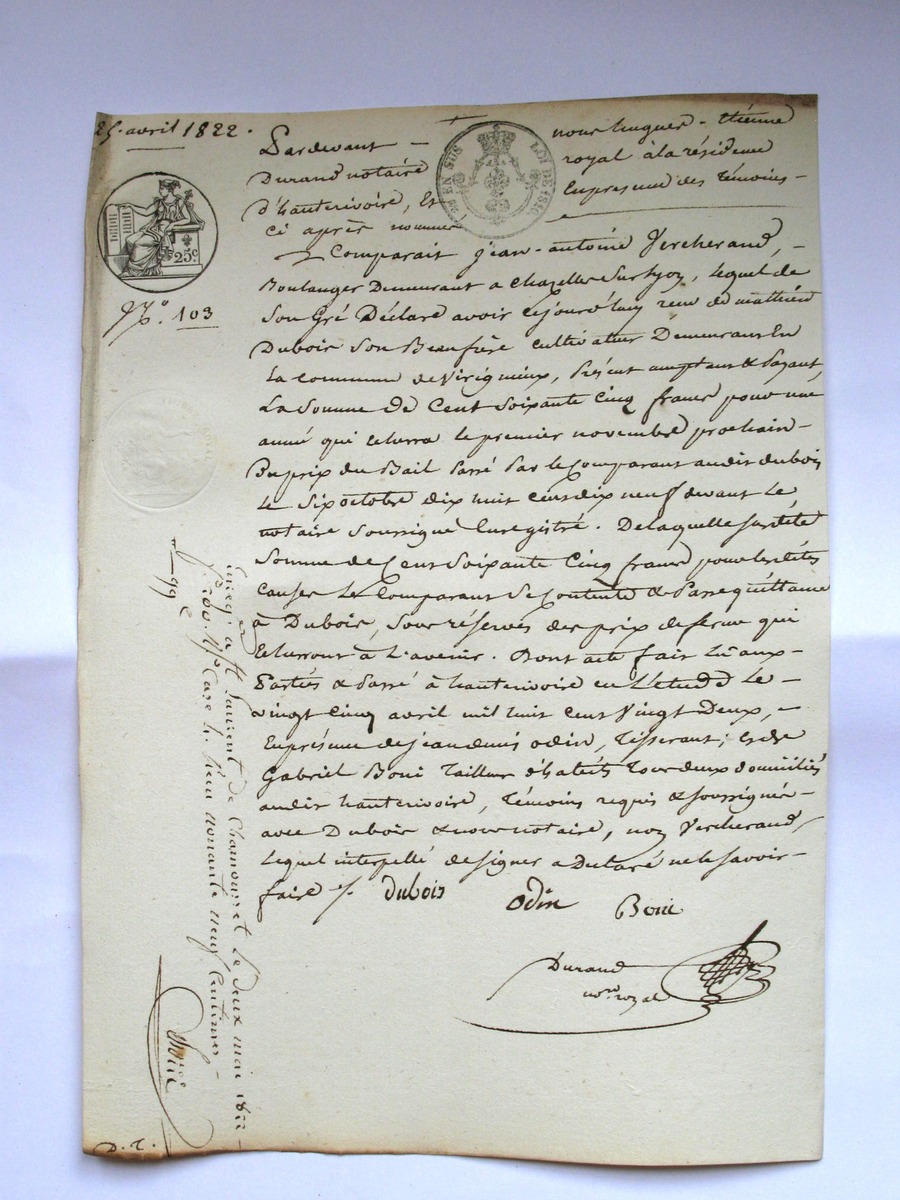 25. avril 1822.
Pardevant - nous hugues - étienne
Durand notaire royal à la résidence
d'hauterivoire, Et En presence des témoins -
ci après nommés
EN SUS LOI DE
25c
N.º 103
Comparait jean-antoine Vercherand, -
Boulanger Demeurant a Chazelles Sur Lyon, Lequel de
Son Gré Déclare avoir cejourd'huy reçu de mathieu
Dubois Son Beaufrère cultivateur Demeurant En
La commune de Virigneux, Présent acceptant & Payant,
La Somme De Cent Soixante Cinq francs pour une
année qui Echerra le premier novembre prochain -
Du prix du Bail Passé Par le Comparant audit dubois
Le Six octobre dix huit cent dix neuf devant Le
notaire Soussigné Enregistré. De laquelle Susdite
Somme de Cent Soixante Cinq francs pour les dites
Causes Le Comparant Se Contente & Passe quittance
à Dubois, Sous réserves des prix de ferme qui
Echerront à L'avenir. Dont acte fait Lu aux -
Parties & Passé à hauterivoire en L'étude Le -
vingt Cinq avril mil huit Cent Vingt Deux, -
En présence de jean denis odin, Tisserant; et de
Gabriel Boni Tailleur d'habits Tous deux domiciliés
audit hauterivoire, Témoins requis & soussignés -
avec Dubois & nous notaire, non Vercherand,
Lequel interpellé de signer a Déclaré ne le savoir -
faire
dubois odin Boni
Durand
nore royal
Enreg. à St Laurent de Chamousset le deux mai 1822 -
fo 100. Vo Case 4. Reçu nonante neuf Centimes -
99 c
D. T.